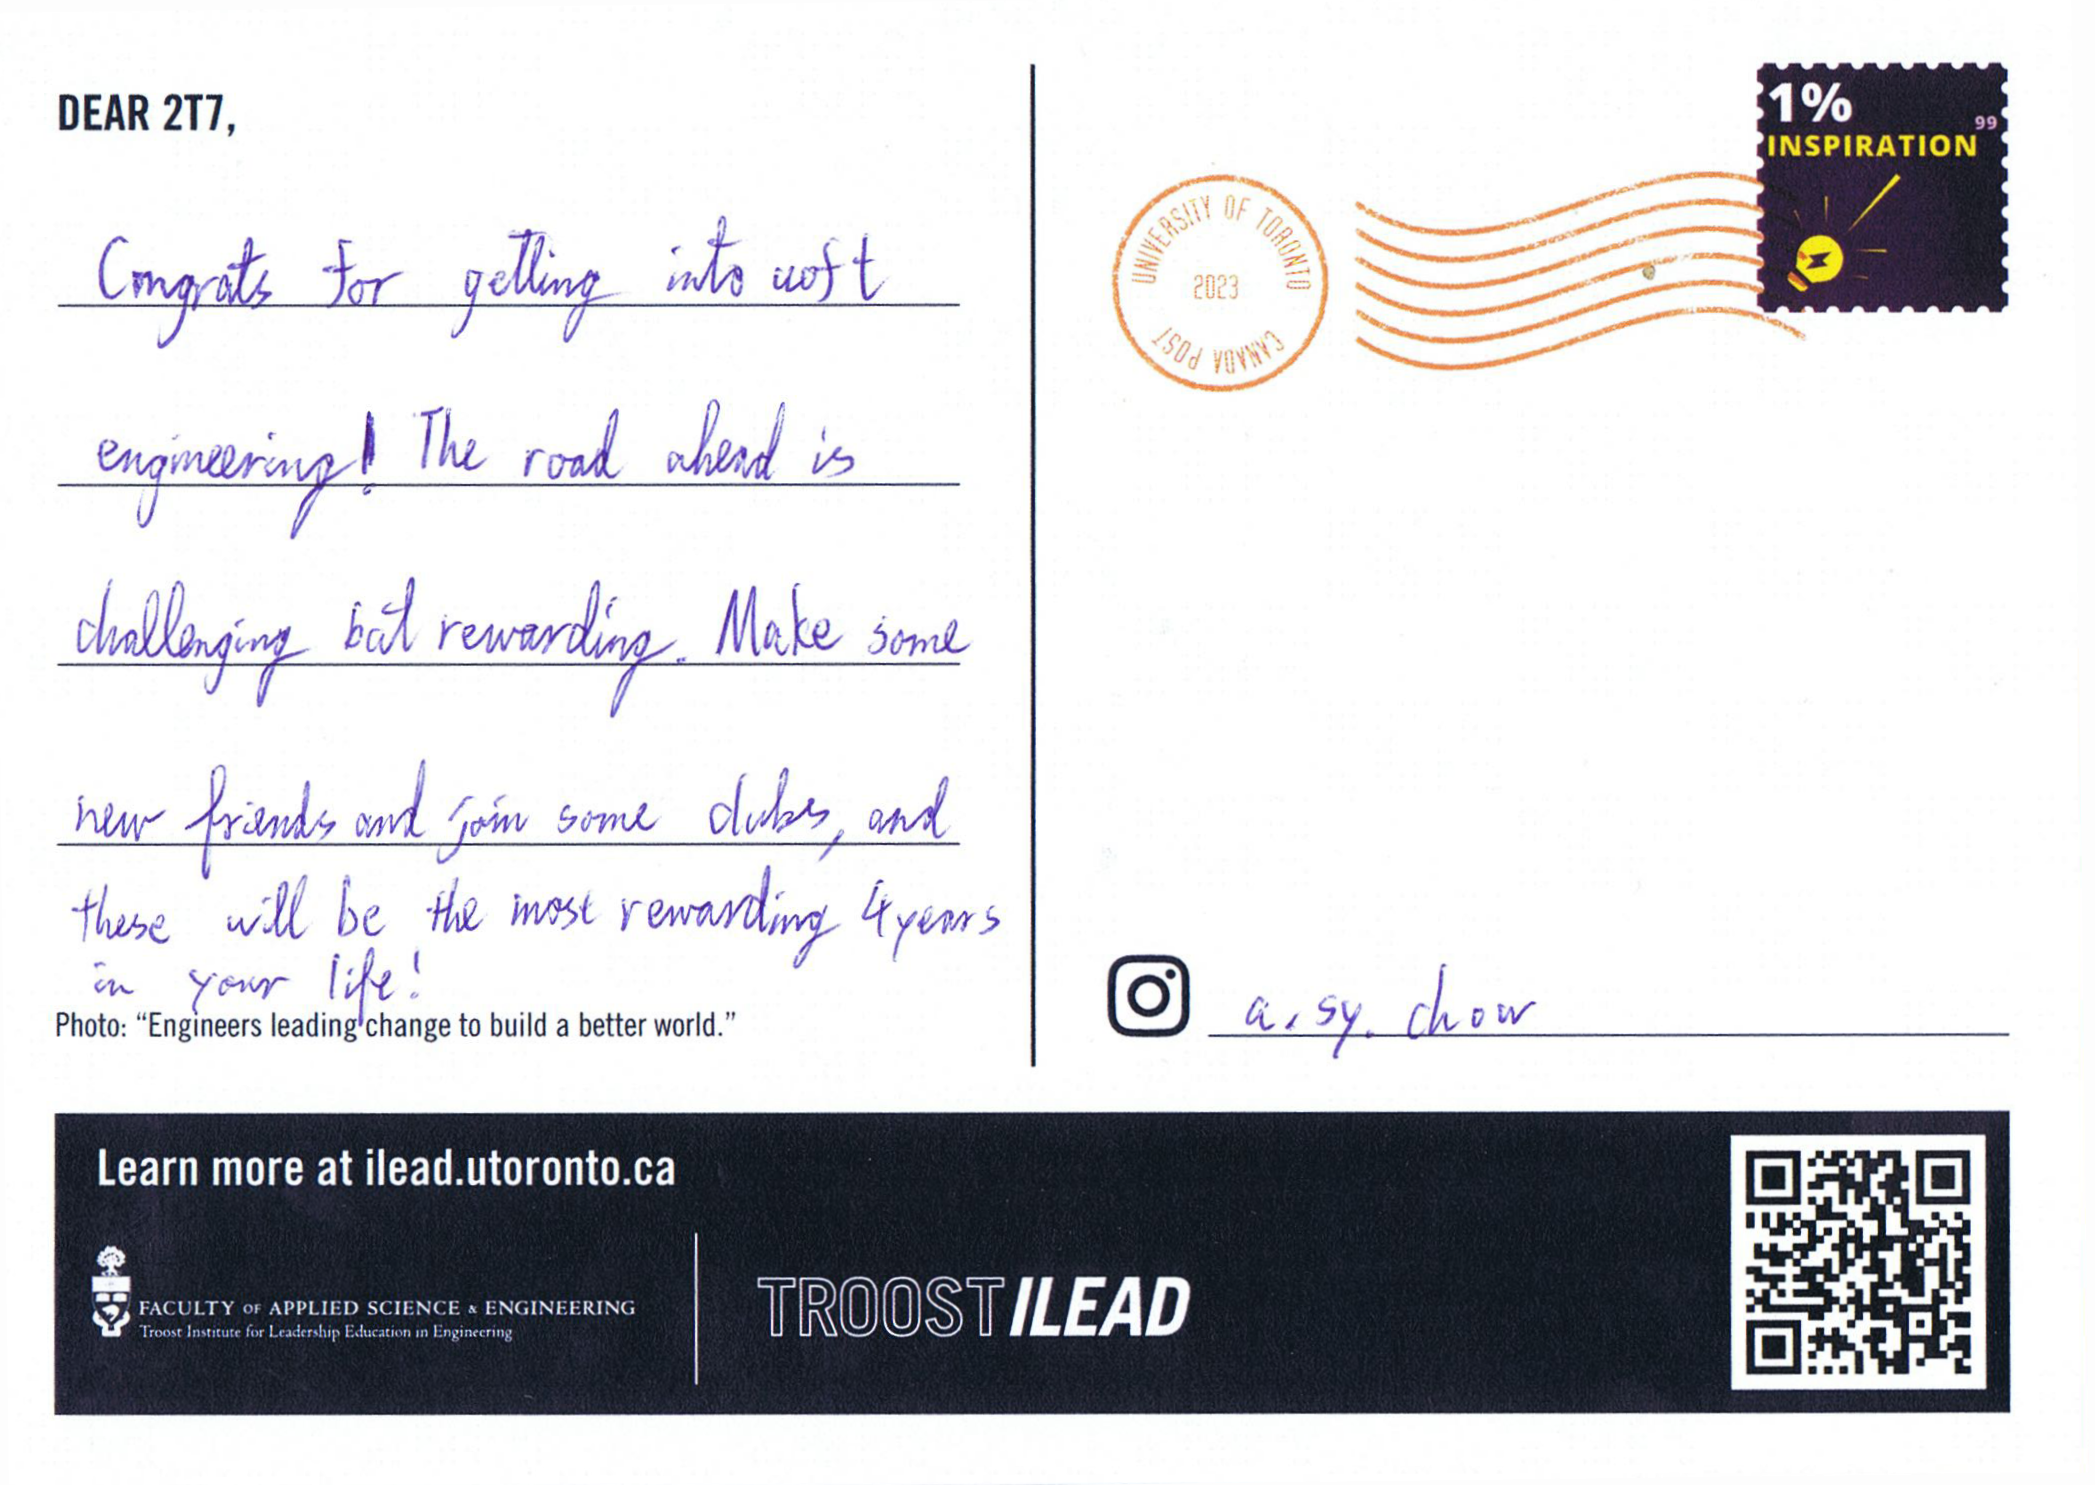 DEAR 2T7,
Congrats for getting into uoft
engineering! The road ahead is
challenging but rewarding. Make some
new friends and join some clubs, and
these will be the most rewarding 4 years
in your life!
Photo: “Engineers leading change to build a better world.”
1%
99
INSPIRATION
UNIVERSITY OF TORONTO
2023
CANADA POST
a.sy.chow
Learn more at ilead.utoronto.ca
FACULTY OF APPLIED SCIENCE & ENGINEERING
Troost Institute for Leadership Education in Engineering
TROOST ILEAD